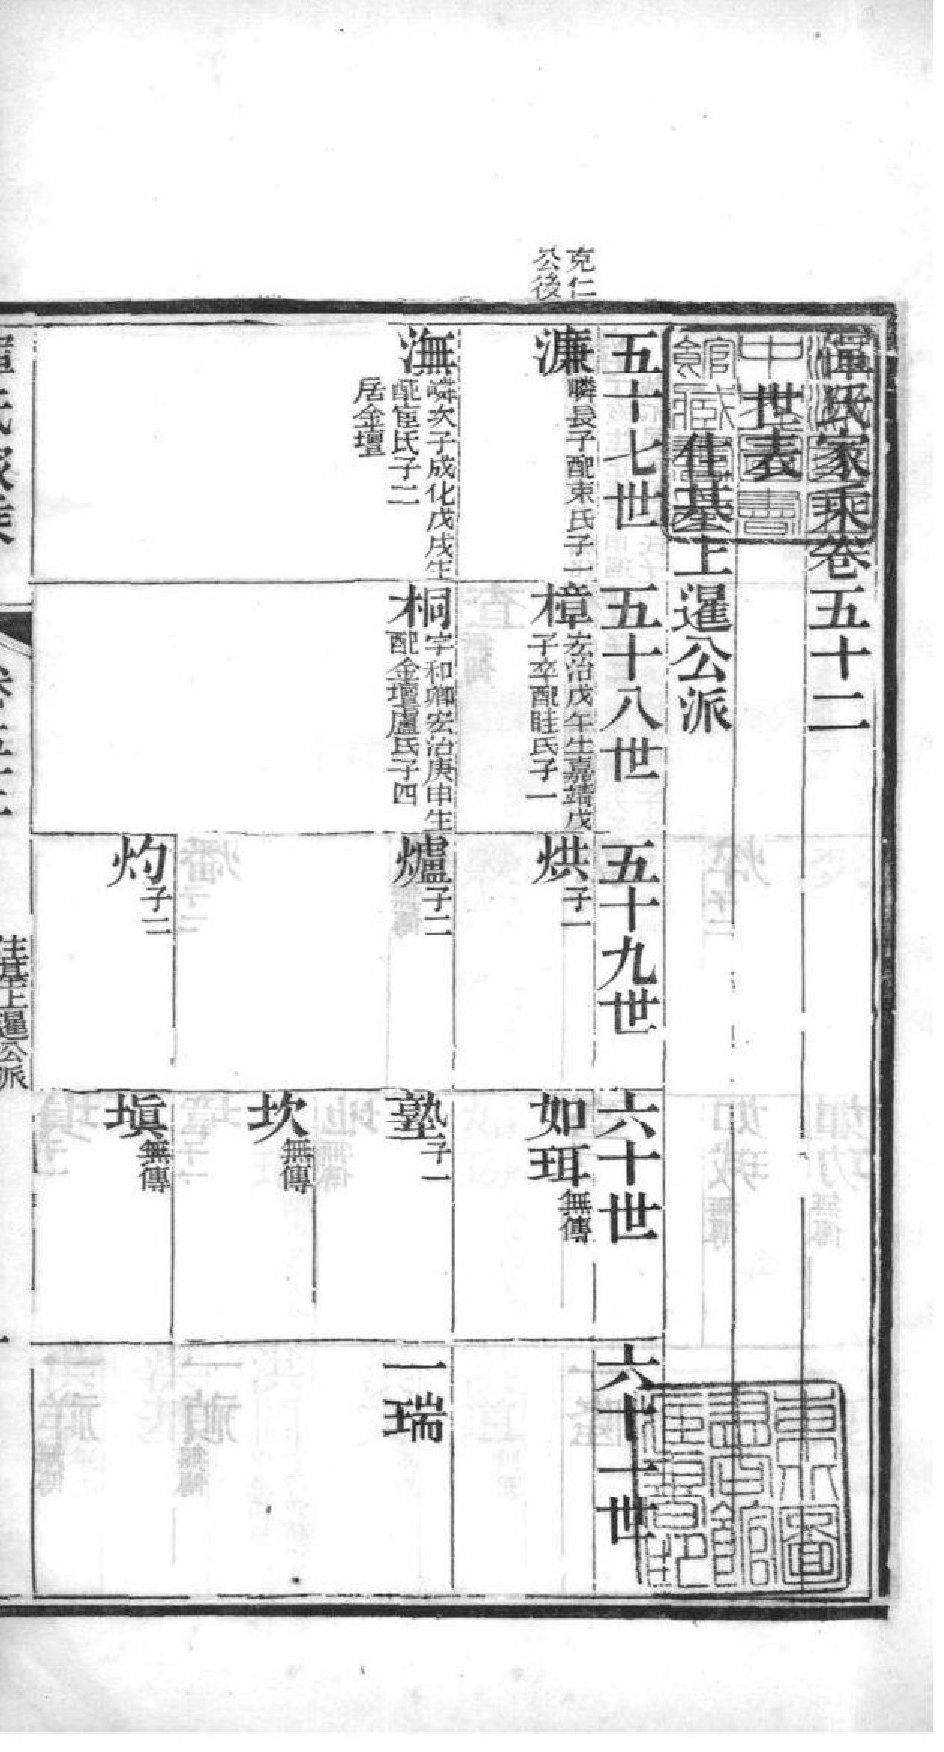 惲氏家乘卷五十二
世表
住基上暹公派
克仁
公後
五十七世
五十八世
五十九世
六十世
六十一世
濂
嶙長子配束氏子一
樟
宏治戊午生嘉靖戊
子卒配眭氏子一
烘
子一
如珥
無傳
潕
嶙次子成化戊戌生
配宦氏子二
居金壇
桐
字和卿宏治庚申生
配金壇盧氏子四
爐
子二
塾
子一
一瑞
坎
無傳
灼
子二
塡
無傳
惲氏家乘
卷五十二
住基上暹公派
一